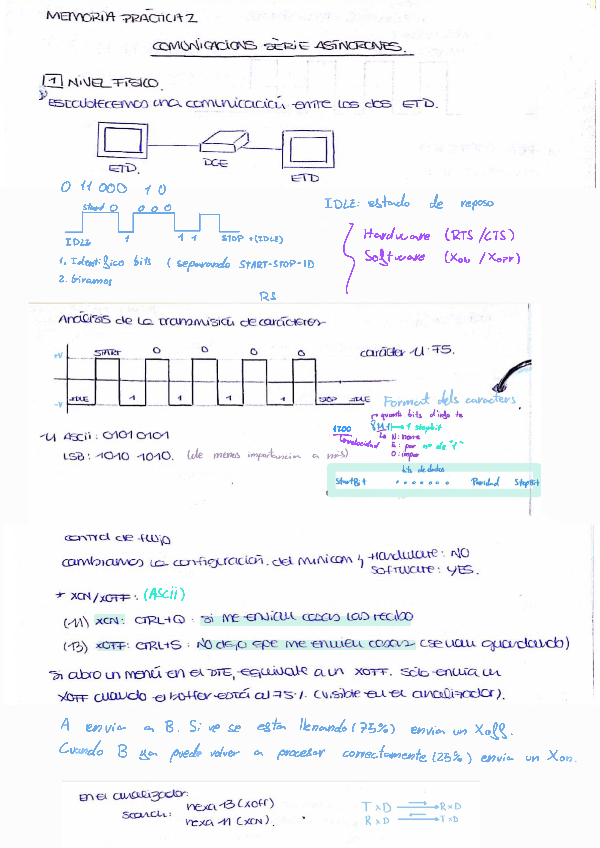 MEMORIA PRÁCTICA 2
COMUNICACIONS SÈRIE ASÍNCRONES.
1 NIVEL FÍSICO.
Establecemos una comunicación entre los dos ETD.
ETD. DCE ETD
0 11 000 1 0
Start 0 0 0 0
IDLE 1 1 1 STOP + (IDLE)
1. Identifico bits ( separando START-STOP-ID
2. Giramos
IDLE: estado de reposo
Hardware (RTS /CTS)
Software (XON / XOFF)
RS
Análisis de la transmisión de carácteres
+V START 0 0 0 0
-V IDLE 1 1 1 1 STOP IDLE
carácter U: 75.
Format dels caracters
quants bits d'info te
1200 8N1 1 stopbit
velocidad N: none
E: par nº de "1"
O: impar
U ASCII: 0101 0101
LSB: 1010 1010. (de menos importancia a más)
bits de datos
StartBit Paridad StopBit
control de flujo
cambiamos la configuración del minicom y Hardware: NO
software: YES.
* XON/XOFF: (ASCII)
(11) XON: CTRL+Q: si me envían cosas las recibo
(13) XOFF: CTRL+S: NO dejo que me envíen cosas (se van guardando)
Si abro un menú en el DTE, equivale a un XOFF. Sólo envía un
XOFF cuando el buffer está al 75%. (visible en el analizador).
A envia a B. Si ve se esta llenando (75%) envia un Xoff.
Cuando B ya puede volver a procesar correctamente (25%) envia un Xon.
En el analizador:
search: hexa 13 (XOFF)
hexa 11 (XON).
TxD RxD
RxD TxD